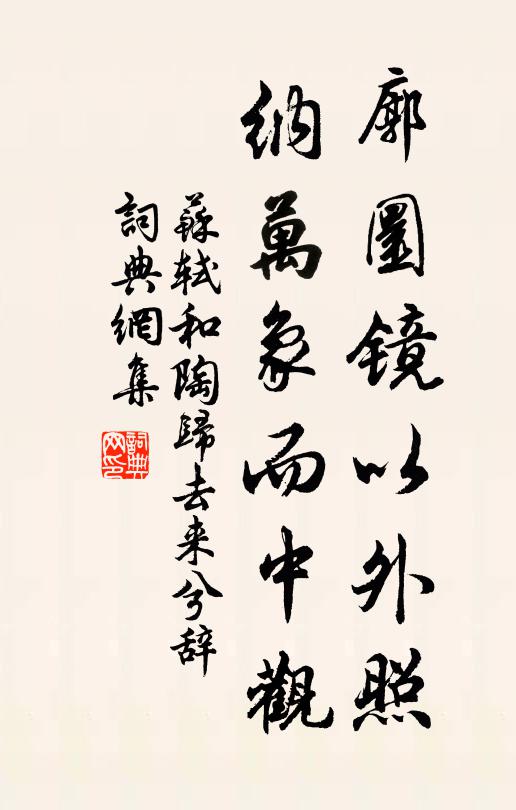 廓圜镜以外照
納萬象而中觀
蘇軾和陶歸去来兮辞
詞典網集
詞典网印